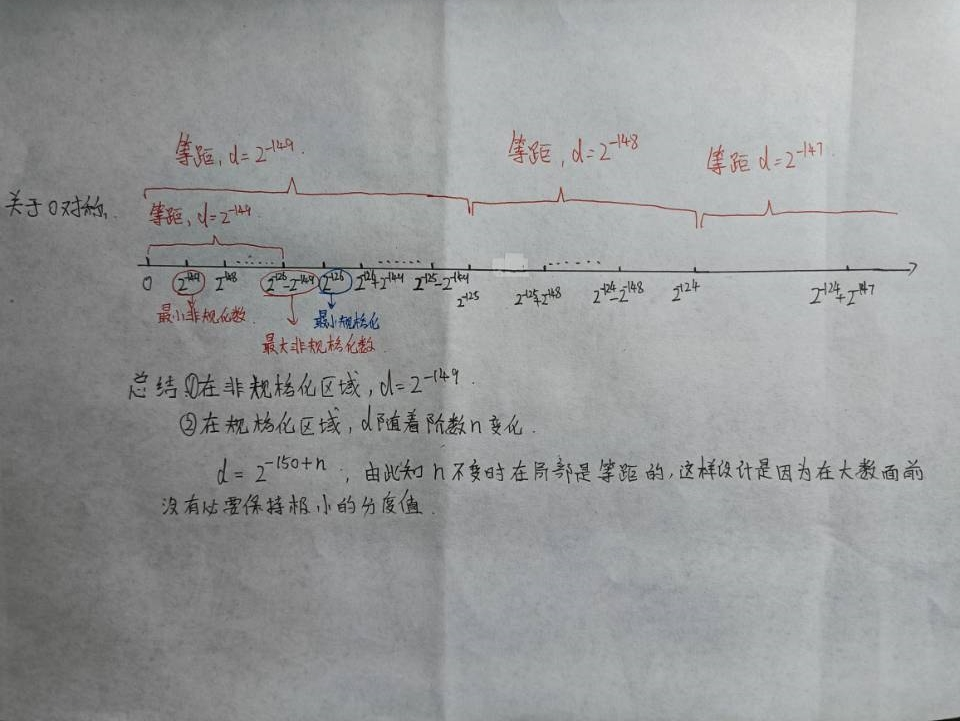 等距, d=2⁻¹⁴⁹.
等距, d=2⁻¹⁴⁸
等距 d=2⁻¹⁴⁷.
关于0对称.
等距, d=2⁻¹⁴⁹.
0 2⁻¹⁴⁹ 2⁻¹⁴⁸ ...... 2⁻¹²⁶-2⁻¹⁴⁹ 2⁻¹²⁶ 2⁻¹²⁶+2⁻¹⁴⁹ ...... 2⁻¹²⁵-2⁻¹⁴⁹
2⁻¹²⁵ 2⁻¹²⁵+2⁻¹⁴⁸ ...... 2⁻¹²⁴-2⁻¹⁴⁸ 2⁻¹²⁴ 2⁻¹²⁴+2⁻¹⁴⁷
最小非规化数.
最小规格化
最大非规格化数.
总结①在非规格化区域, d=2⁻¹⁴⁹.
②在规格化区域, d随着阶数n变化.
d=2⁻¹⁵⁰⁺ⁿ, 由此知n不变时在局部是等距的,这样设计是因为在大数面前
没有必要保持极小的分度值.